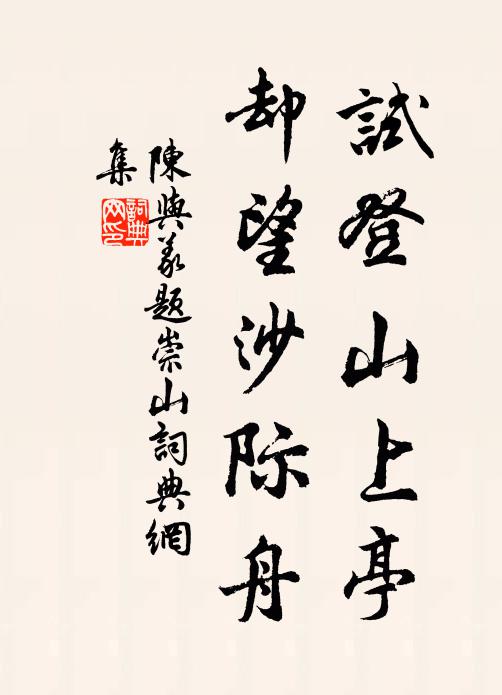 試登山上亭
却望沙际舟
陳與义題崇山詞典網
集
詞典
网印